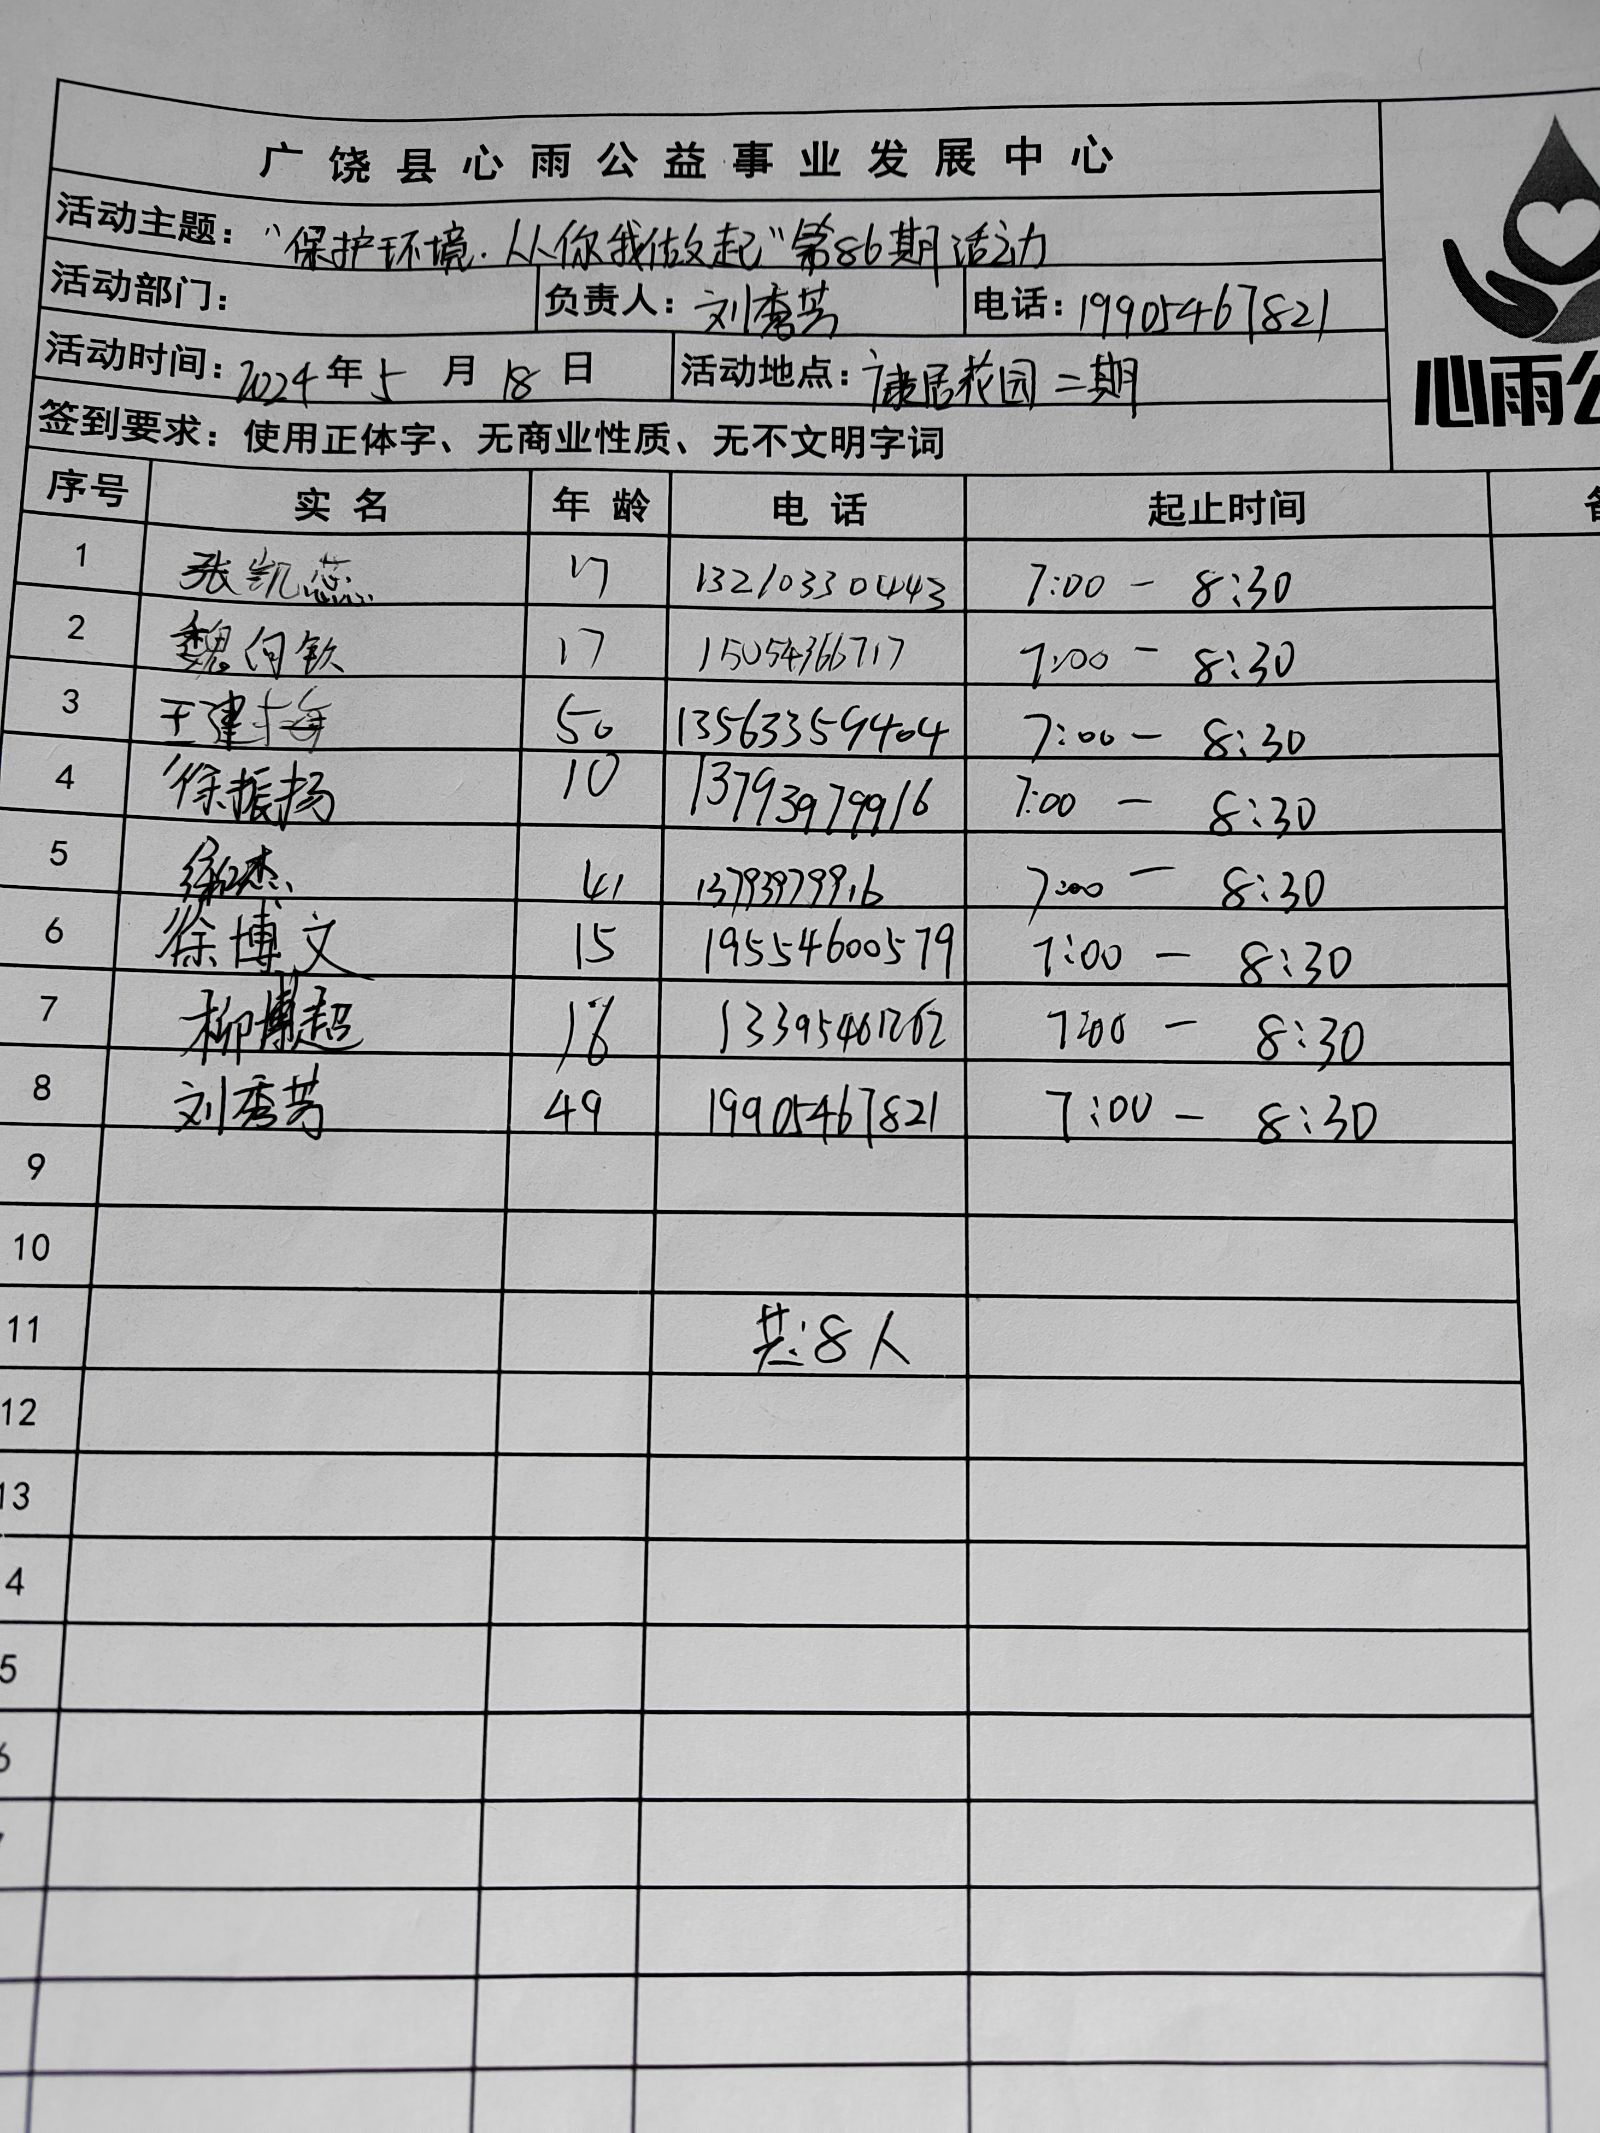 广饶县心雨公益事业发展中心
活动主题："保护环境.从你我做起"第86期活动
活动部门： 负责人：刘秀芳 电话：19905467821
活动时间：2024年5月18日 活动地点：康居花园二期
心雨公
签到要求：使用正体字、无商业性质、无不文明字词
序号 实名 年龄 电话 起止时间
1 张凯蕊 17 13210330443 7:00 - 8:30
2 魏向钦 17 15054366717 7:00 - 8:30
3 王建梅 50 13563359404 7:00 - 8:30
4 徐振扬 10 13793979916 7:00 - 8:30
5 徐杰 41 13793979916 7:00 - 8:30
6 徐博文 15 19554600579 7:00 - 8:30
7 柳博超 16 7:00 - 8:30
8 刘秀芳 49 19905467821 7:00 - 8:30
9
10
11 共:8人
12
13
4
5
6